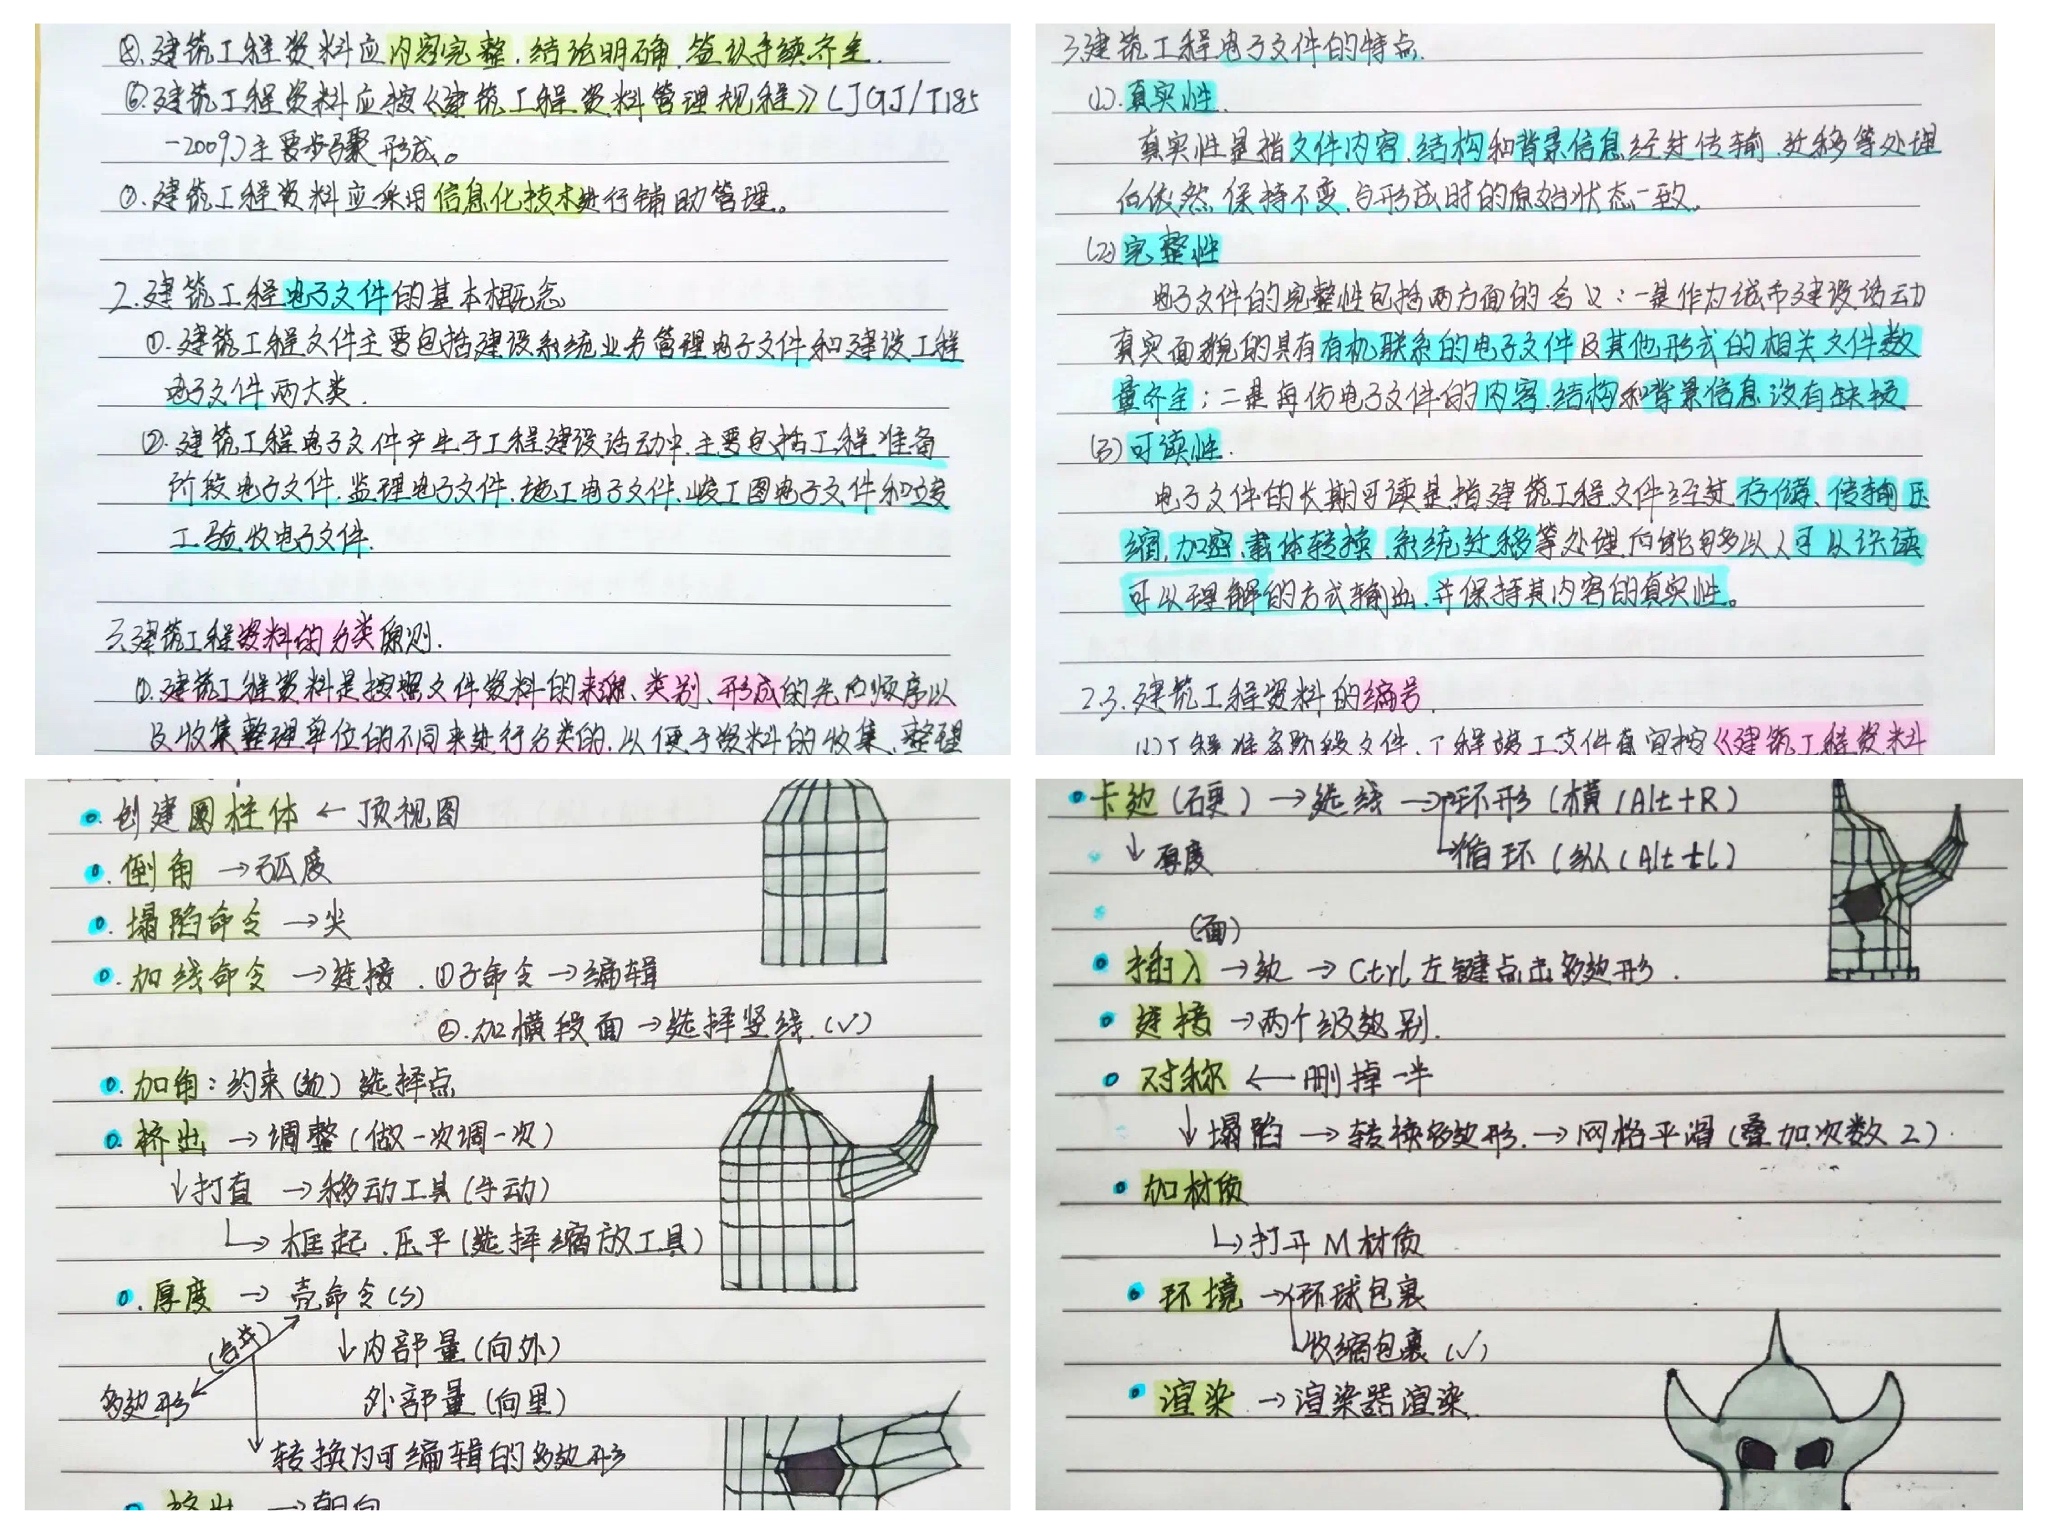 ⑤.建筑工程资料应内容完整、结论明确、签认手续齐全.
⑥.建筑工程资料应按《建筑工程资料管理规程》(JGJ/T185
-2009)主要步骤形成。
⑦.建筑工程资料应采用信息化技术进行辅助管理。
2.建筑工程电子文件的基本概念
①.建筑工程文件主要包括建设系统业务管理电子文件和建设工程
电子文件两大类.
②.建筑工程电子文件产生于工程建设活动中.主要包括工程准备
阶段电子文件.监理电子文件.施工电子文件.竣工图电子文件和竣
工验收电子文件.
三.建筑工程资料的分类原则.
①.建筑工程资料是按照文件资料的来源、类别、形成的先后顺序以
及收集整理单位的不同来进行分类的.以便于资料的收集、整理
3.建筑工程电子文件的特点.
(1).真实性.
真实性是指文件内容.结构和背景信息经过传输.迁移等处理
后依然保持不变.与形成时的原始状态一致。
(2)完整性
电子文件的完整性包括两方面的含义:一是作为城市建设活动
真实面貌的具有有机联系的电子文件及其他形式的相关文件数
量齐全;二是每份电子文件的内容.结构和背景信息没有缺损
(3)可读性.
电子文件的长期可读是指建筑工程文件经过存储、传输压
缩.加密.载体转换.系统迁移等处理后能够以人可以识读
可以理解的方式输出.并保持其内容的真实性。
2.3.建筑工程资料的编号.
(1)工程准备阶段文件、工程竣工文件宜按《建筑工程资料
创建圆柱体 ← 顶视图
倒角 → 弧度
塌陷命令 → 尖
加线命令 → 连接.①子命令 → 编辑
②.加横段面 → 选择竖线.(√)
加角:约束(边) 选择点
挤出 → 调整(做一次调一次)
↓打直 → 移动工具(手动)
↳ 框起.压平(选择缩放工具)
厚度 → 壳命令(S)
↓内部量(向外)
多边形 外部量(向里)
转换为可编辑的多边形
挤出 → 朝向
卡边(硬) → 选线 → 环形(横(Alt+R)
↓厚度 循环(纵(Alt+L)
(面)
插入 → 边 → Ctrl左键点击多边形.
连接 → 两个级边别.
对称 ← 删掉一半
↓塌陷 → 转换多边形. → 网格平滑(叠加次数2).
加材质
↳打开M材质
环境 → 环球包裹
收缩包裹(√)
渲染 → 渲染器渲染.